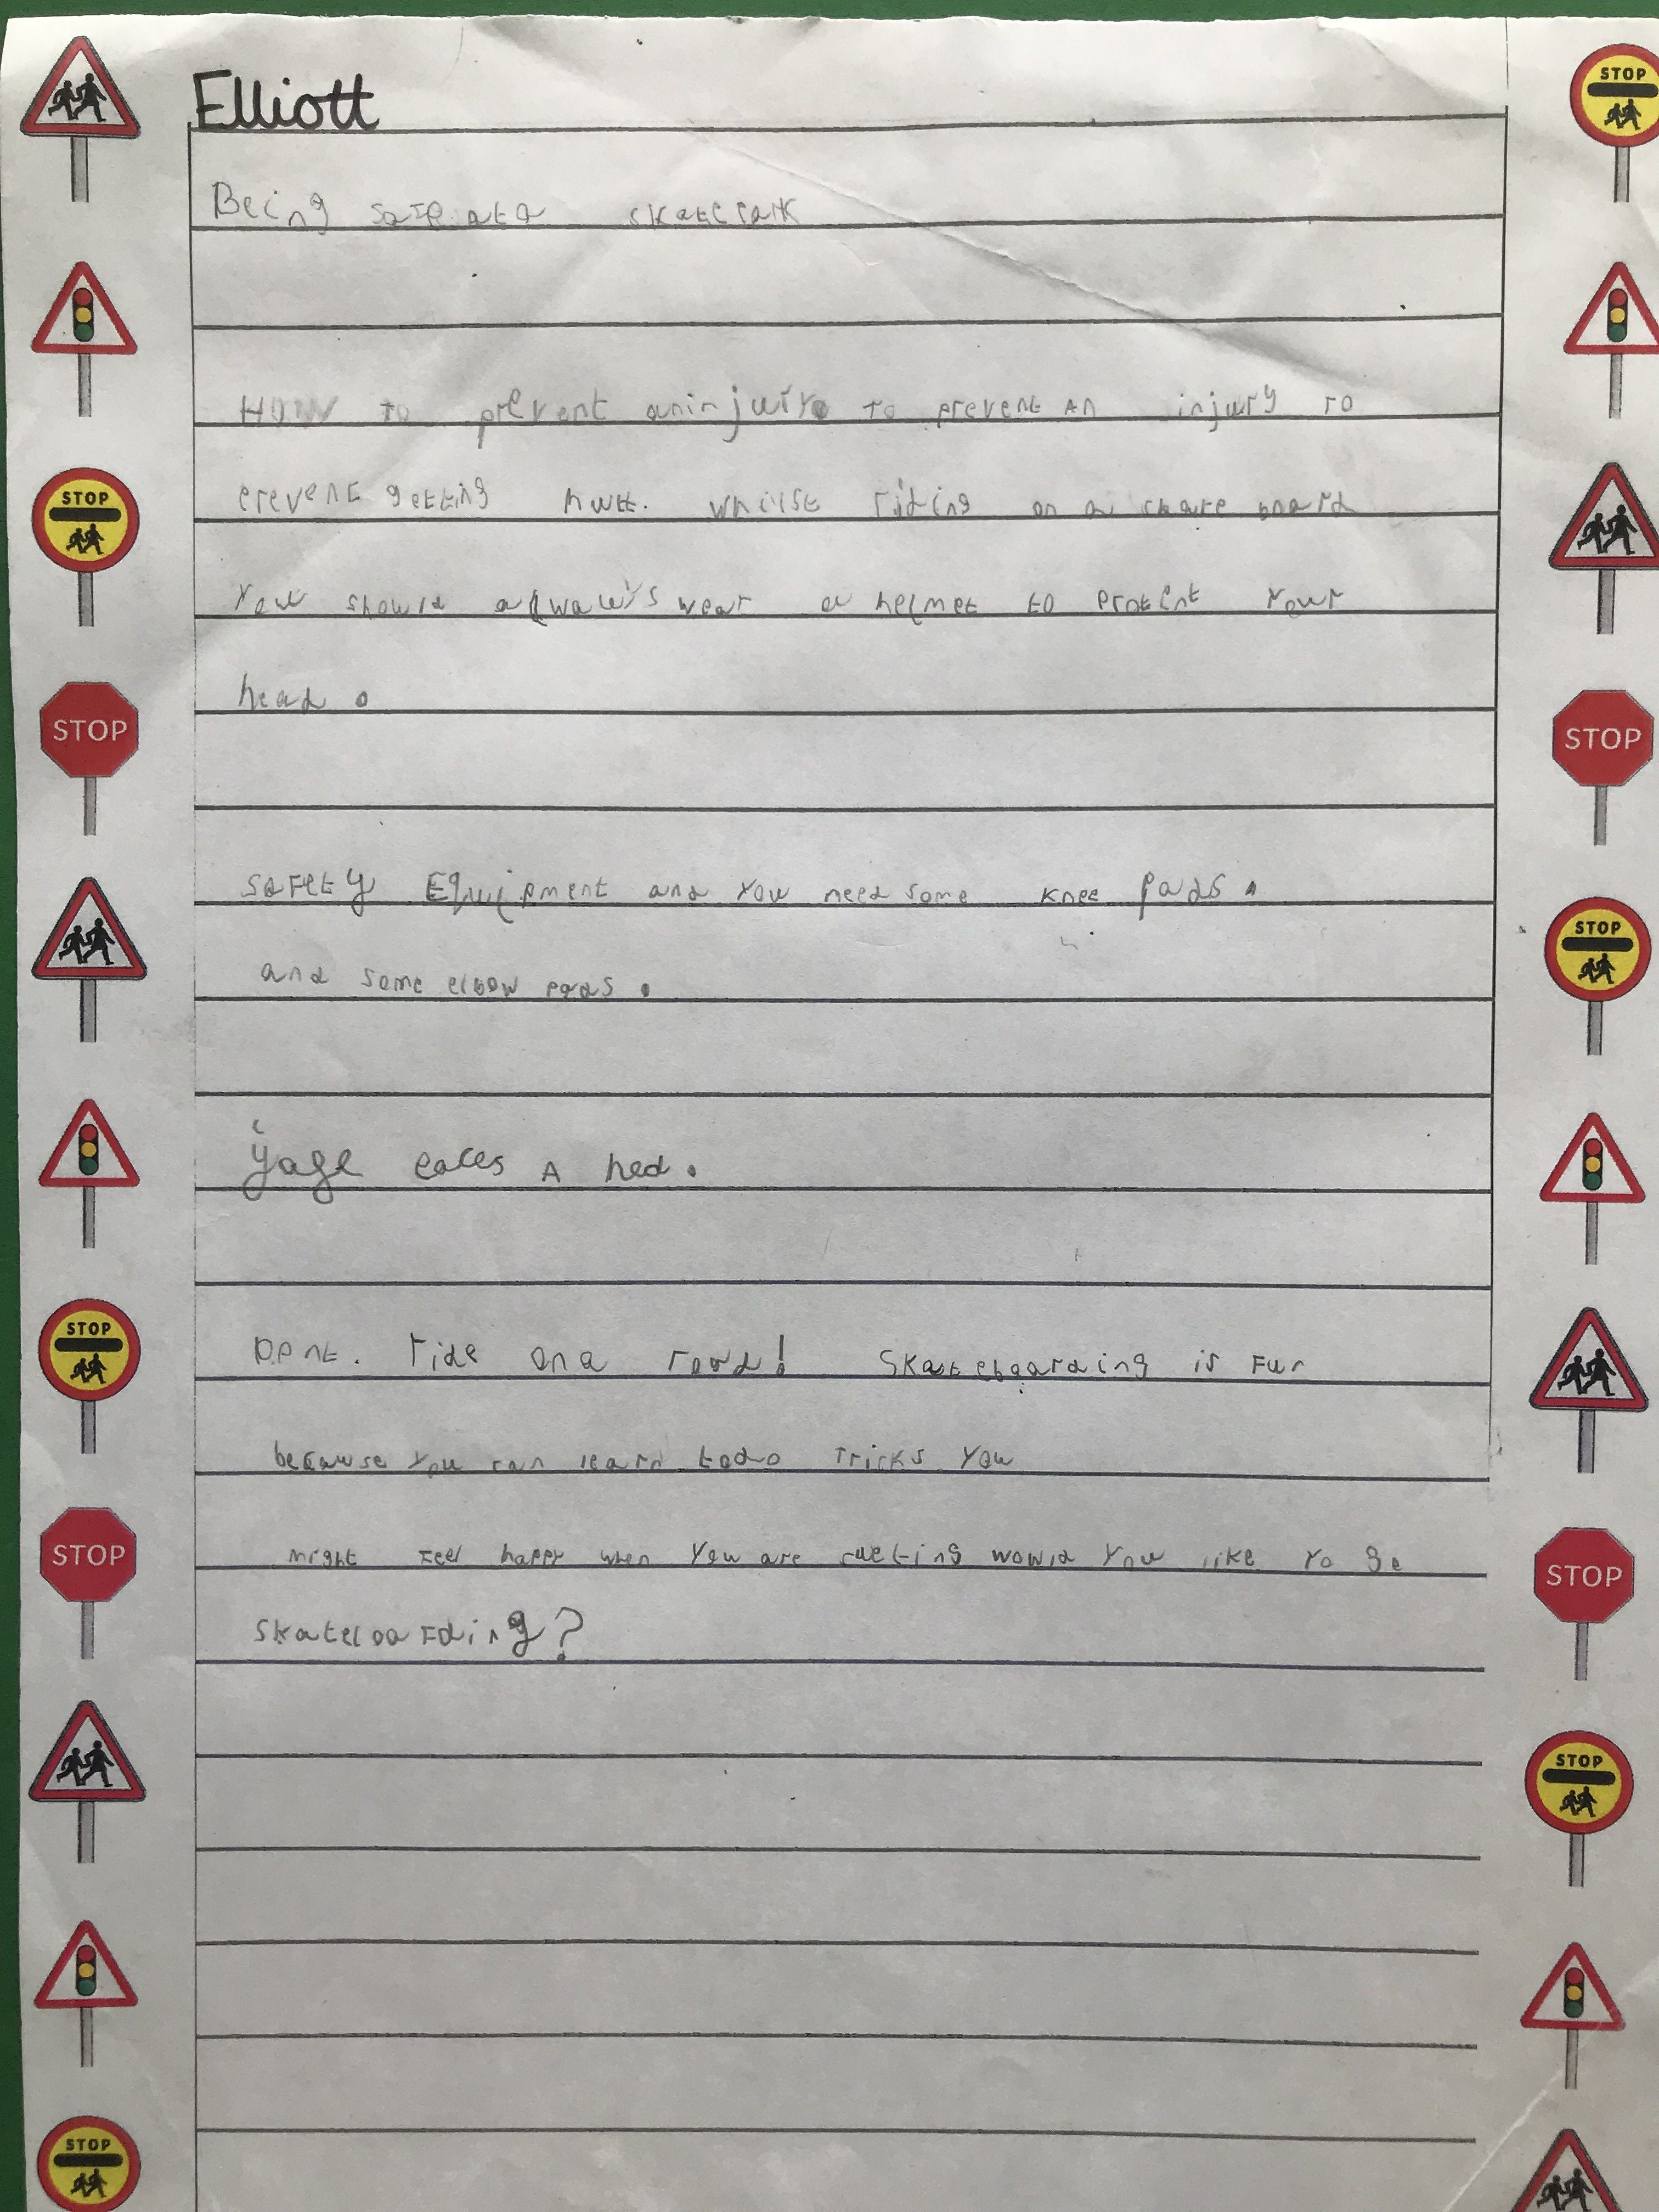 Elliott
Being safe at a skatepark
How to prevent an injury to prevent an injury to
prevent getting hurt. whilst riding on a skate board
You should always wear a helmet to protect your
head.
safety Equipment and you need some knee pads.
and some elbow pads.
A hed.
Dont. ride on a road! Skateboarding is Fun
because you can learn to do Tricks You
might Feel happy when you are would you like To Go
skateboarding?
STOP
STOP
STOP
STOP
STOP
STOP
STOP
STOP
STOP
STOP